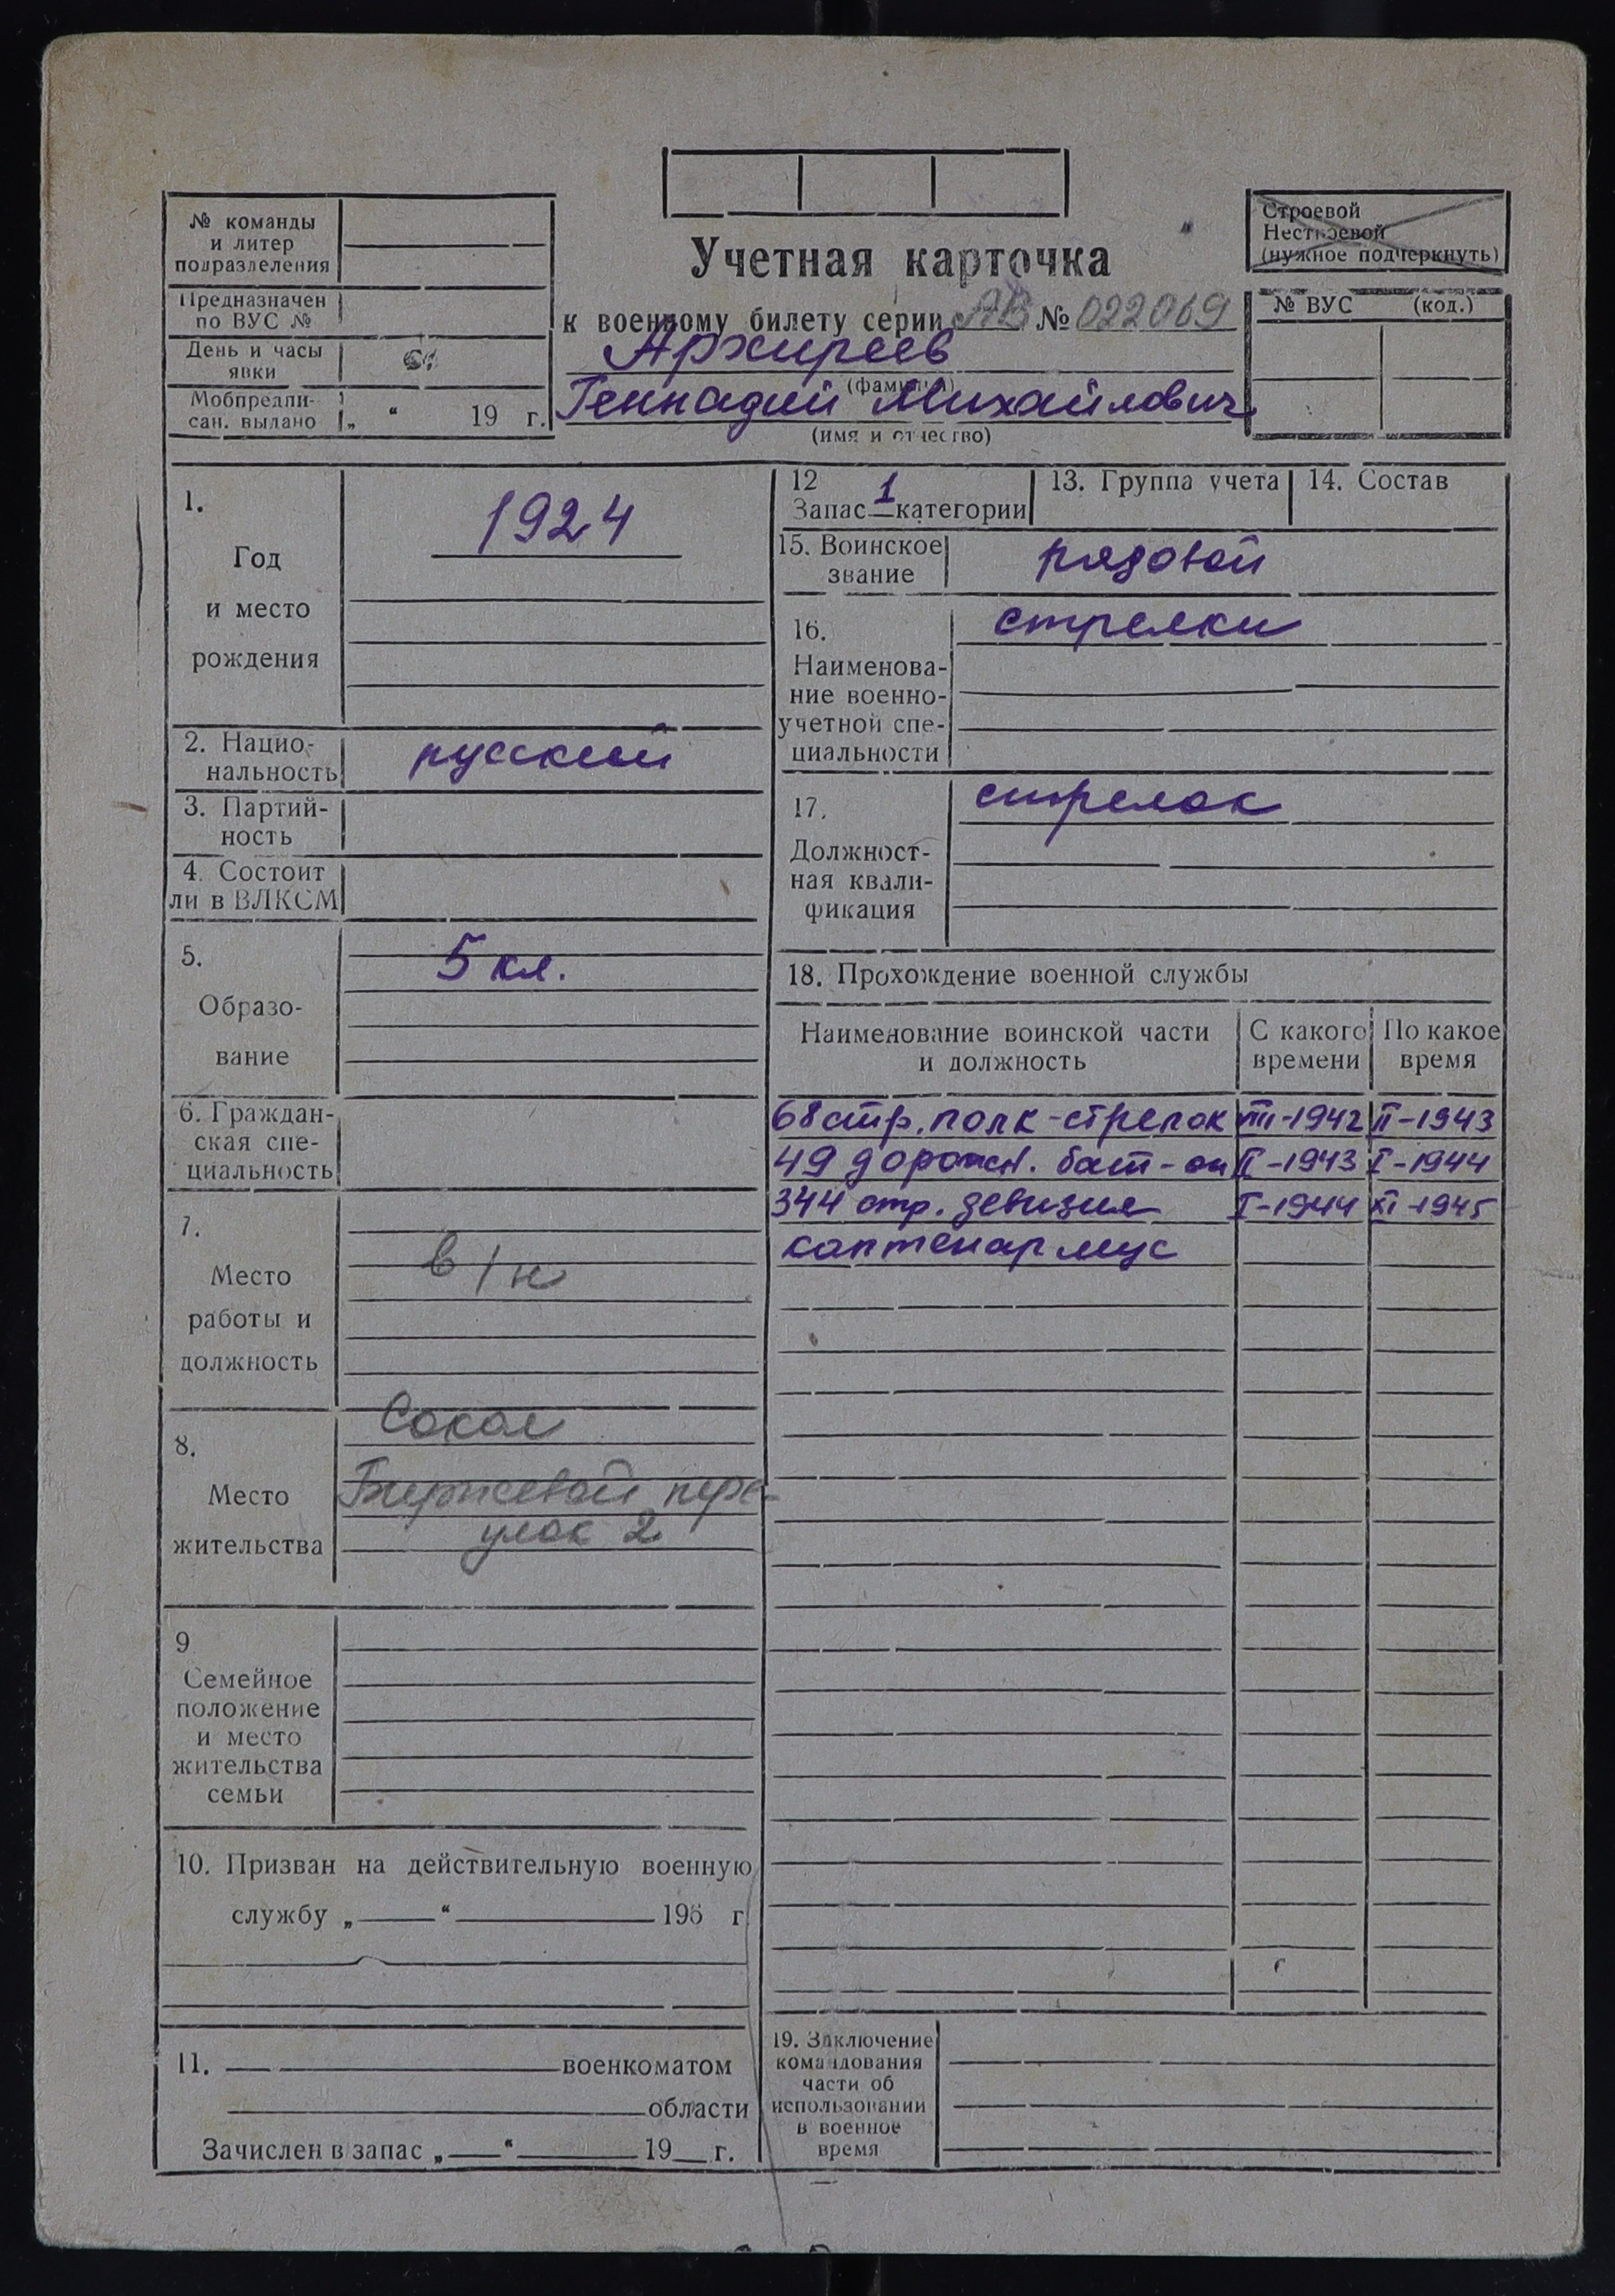 № команды
и литер
подразделения
Предназначен
по ВУС №
День и часы
явки
Мобпредпи-
сан. вылано „ “ 19 г.
Учетная карточка
к военному билету серии АВ № 022069
Архиреев
(фамилия)
Геннадий Михайлович
(имя и отчество)
Строевой
Нестроевой
(нужное подчеркнуть)
№ ВУС (код.)
1.
Год
и место
рождения
1924
2. Нацио-
нальность
русский
3. Партий-
ность
4. Состоит
ли в ВЛКСМ
5.
Образо-
вание
5 кл.
6. Граждан-
ская спе-
циальность
7.
Место
работы и
должность
в/н
8.
Место
жительства
Сокол
Биржевой пере-
улок 2
9
Семейное
положение
и место
жительства
семьи
10. Призван на действительную военную
службу „ “ 195 г.
11. военкоматом
области
Зачислен в запас „ “ 19 г.
12
Запас 1 категории
13. Группа учета
14. Состав
15. Воинское
звание
рядовой
16.
Наименова-
ние военно-
учетной спе-
циальности
стрелки
17.
Должност-
ная квали-
фикация
стрелок
18. Прохождение военной службы
Наименование воинской части
и должность
С какого
времени
По какое
время
68 стр. полк - стрелок VIII-1942 II-1943
49 дорожн. бат-он II-1943 I-1944
344 стр. девизия I-1944 XI-1945
коптенармус
19. Заключение
командования
части об
использовании
в военное
время